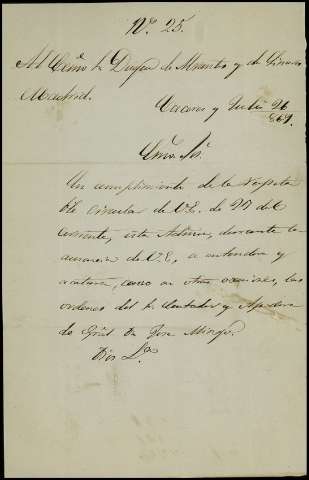 Nº. 25.
Al Exmo Sr Duque de Abrantes y de Linares
Madrid.
Caceres y Julio 26
/869.
Exmo. Sr.
En cumplimiento de la respeta
ble circular de V.E. de 22 del
corriente, este Admor, durante la
ausencia de V.E., a entendera y
acatara, como en otras ocasiones, las
ordenes del Sr Contador y Apodera
do Gral Dn Jose Mingo.
Dios &ª